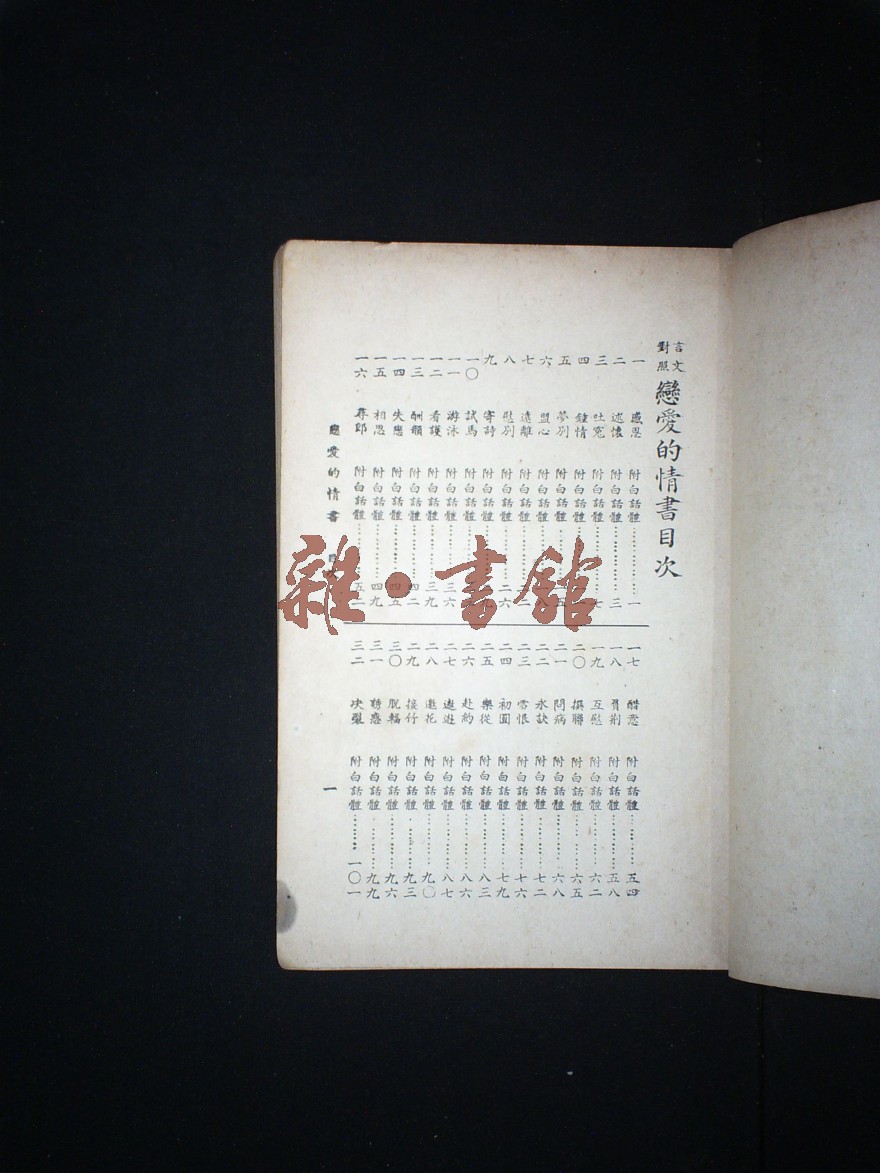 言文對照 戀愛的情書目次
一 感恩 附白話體……一
二 述懷 附白話體……三
三 吐冤 附白話體……七
四 鍾情 附白話體……
五 夢別 附白話體……
六 盟心 附白話體……
七 遠離 附白話體……
八 慰別 附白話體……二六
九 寄詩 附白話體……
一〇 試馬 附白話體……
一一 游泳 附白話體……三六
一二 看護 附白話體……三九
一三 酬韻 附白話體……四二
一四 失戀 附白話體……四五
一五 相思 附白話體……四九
一六 尋郎 附白話體……五二
一七 酣意 附白話體……五四
一八 負荆 附白話體……五八
一九 互慰 附白話體……六二
二〇 撰聯 附白話體……六五
二一 問病 附白話體……六八
二二 永訣 附白話體……七二
二三 雪恨 附白話體……七六
二四 初圓 附白話體……七九
二五 樂從 附白話體……八三
二六 赴約 附白話體……八六
二七 遨遊 附白話體……八七
二八 邀花 附白話體……九〇
二九 接竹 附白話體……九三
三〇 脫輻 附白話體……九六
三一 誘惑 附白話體……九九
三二 决裂 附白話體……一〇一
戀愛的情書
一
雜·書館